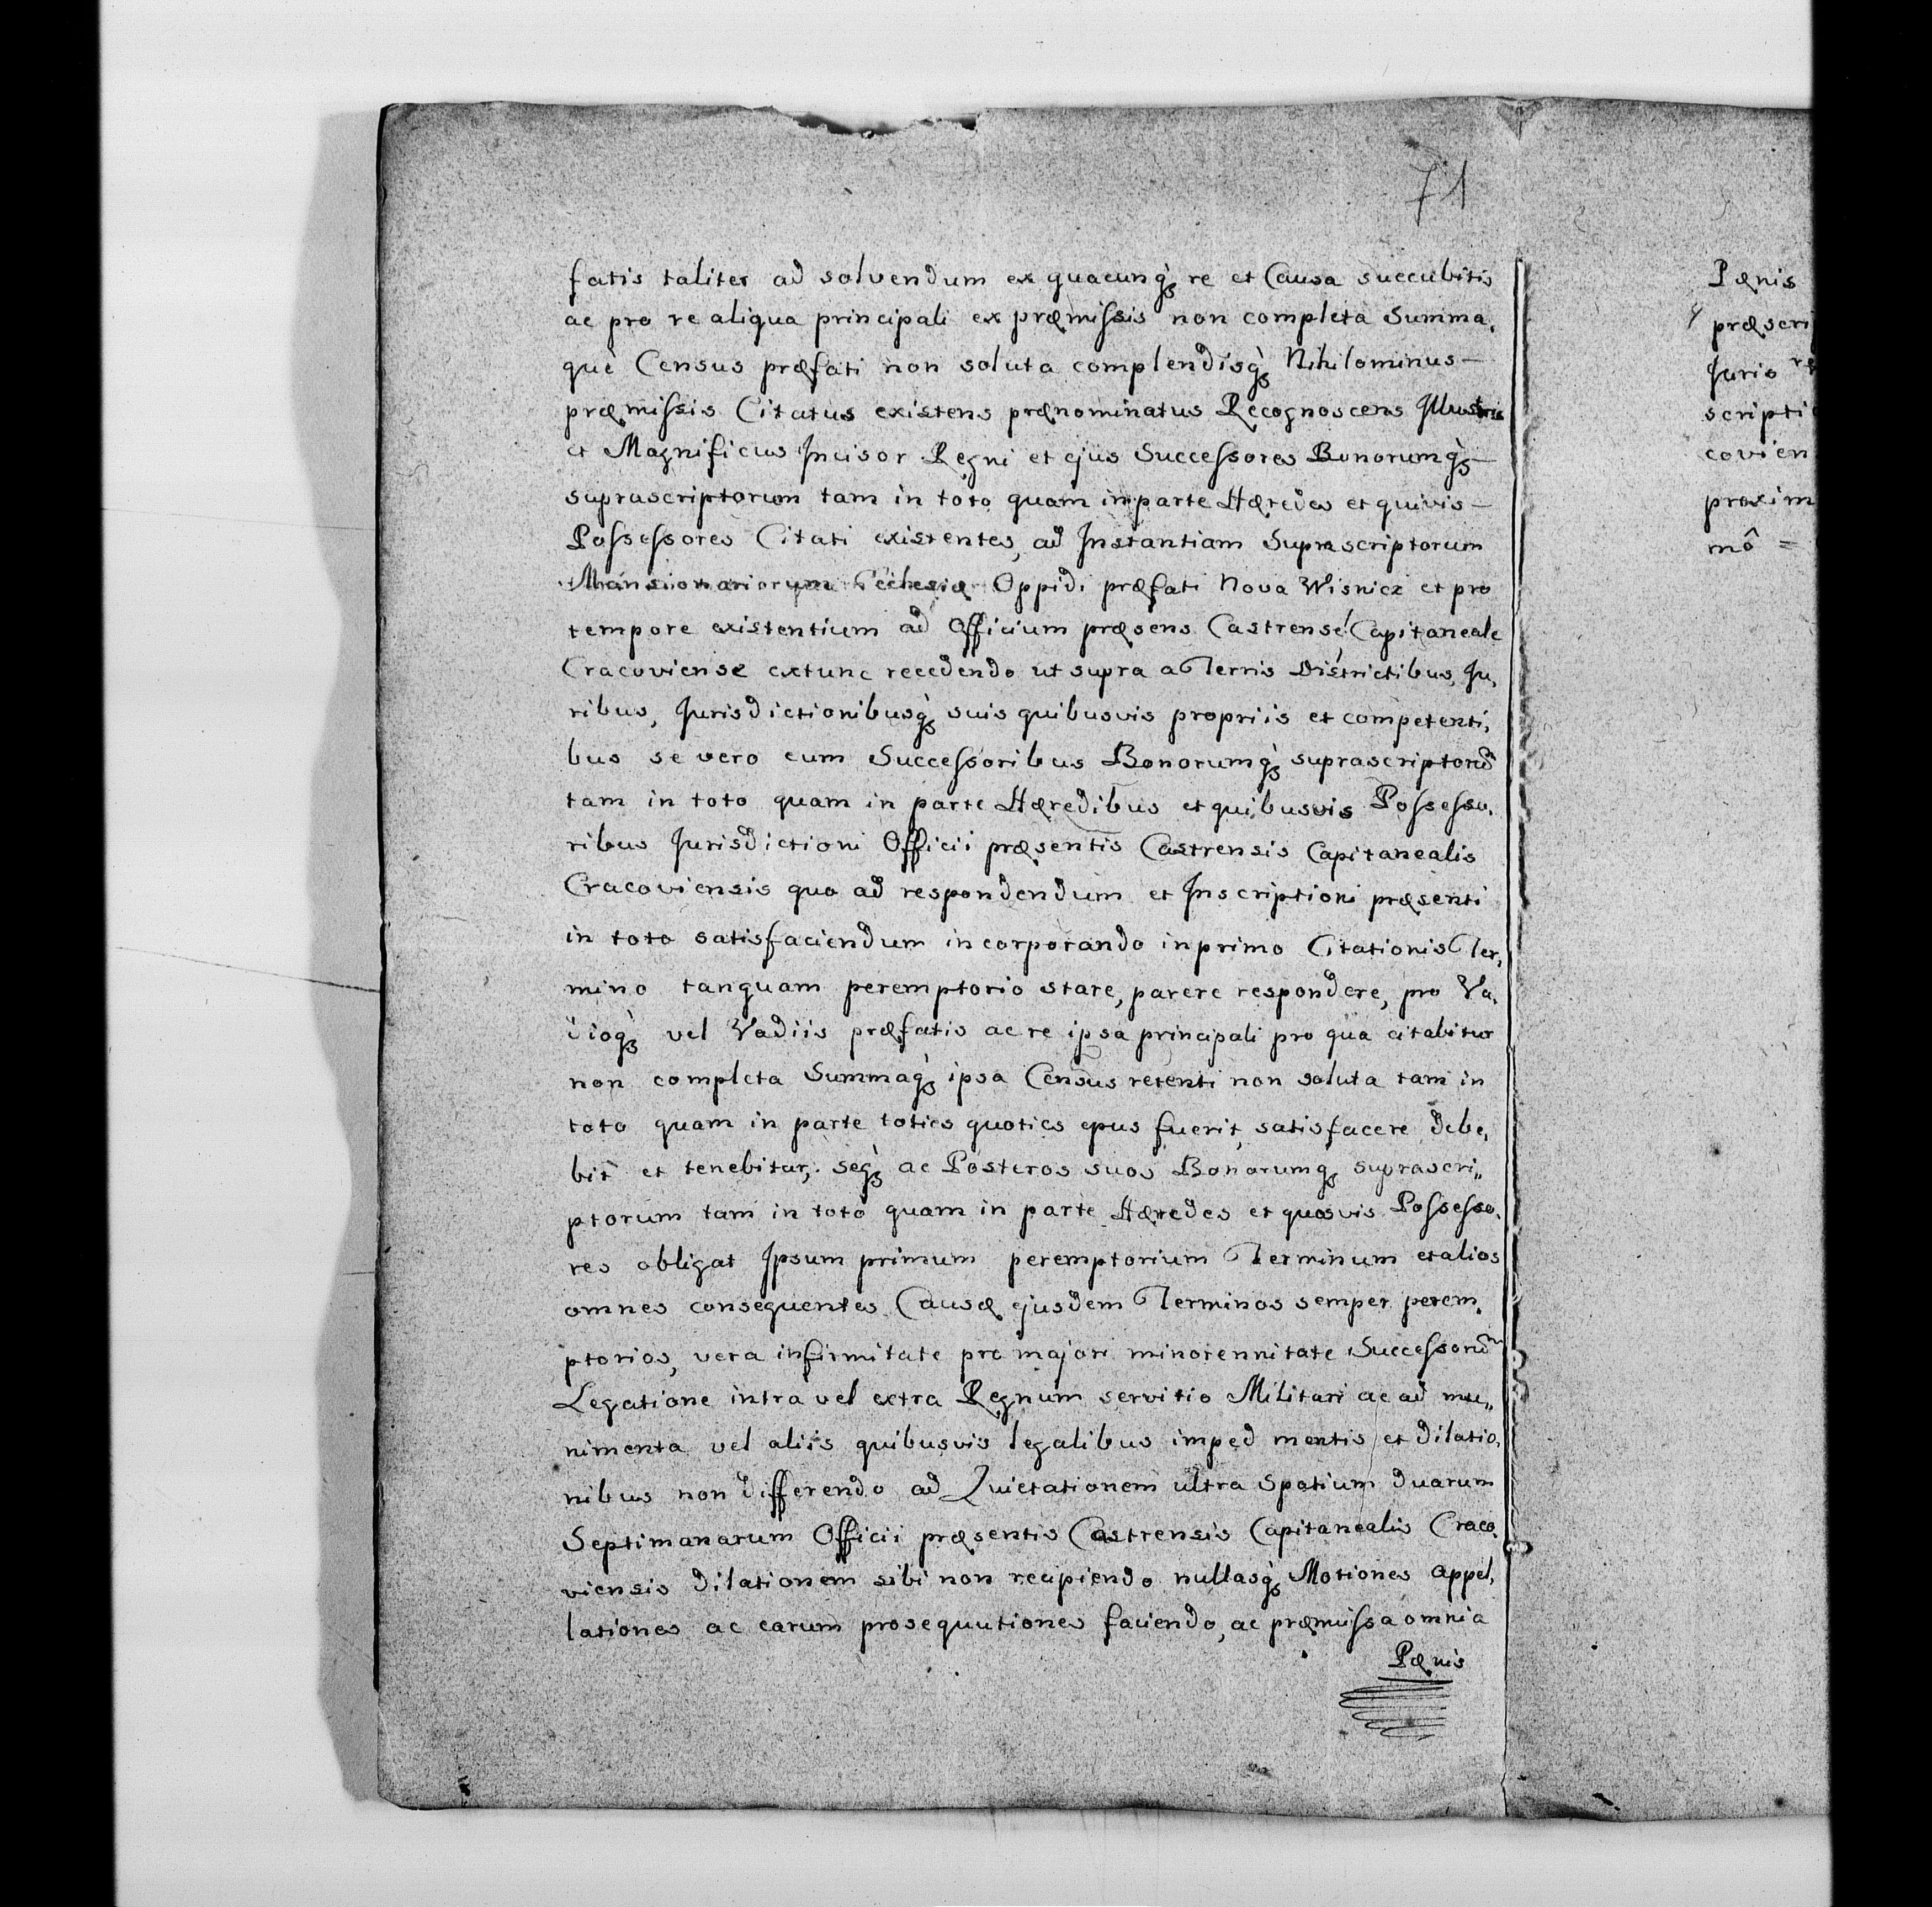 71
fatis taliter ad solvendum ex quacunq̀ꝫ re et Causa succubitis
ac pro re aliqua principali ex præmissis non completa Summa,
què Census præfati non soluta complendisq̀ꝫ Nihilominus —
præmissis Citatus existens prænominatus Recognoscens Illustris
et Magnificus Incisor Regni et ejus Successores Bonorumq̀ꝫ —
suprascriptorum tam in toto quam in parte Hæredes et quivis —
Possessores Citati existentes, ad Instantiam Suprascriptorum
Mansionariorum Ecclesiæ Oppidi præfati Nova Wisnicz et pro
tempore existentium ad Officium præsens Castrense Capitaneale
Cracoviense extunc recedendo ut supra a Terris Districtibus, Ju,
ribus, Jurisdictionibusq̀ꝫ suis quibusvis propriis et competenti,
bus se vero cum Successoribus Bonorumq̀ꝫ suprascriptorũ
tam in toto quam in parte Hæredibus et quibusvis Possesso,
ribus Jurisdictioni Officii præsentis Castrensis Capitanealis
Cracoviensis quo ad respondendum et Inscriptioni præsenti
in toto satisfaciendum incorporando in primo Citationis Ter,
mino tanquam peremptorio stare, parere respondere, pro Va,
dioq̀ꝫ vel Vadiis præfatis ac re ipsa principali pro qua citabitur
non completa Summaq̀ꝫ ipsa Census retenti non soluta tam in
toto quam in parte toties quoties opus fuerit, satisfacere debe,
bit et tenebitur, seq̀ꝫ ac Posteros suos Bonorumqꝫ suprascri,,
ptorum tam in toto quam in parte Hæredes et quosvis Possesso,
res obligat Ipsum primum peremptorium Terminum et alios
omnes consequentes Causæ ejusdem Terminos semper perem,
ptorios, vera infirmitate pro majori minorennitate Successorũ
Legatione intra vel extra Regnum servitio Militari ac ad mu,,
nimenta vel aliis quibusvis legalibus imped mentis et dilatio,
nibus non differendo ad Quietationem ultra Spatium duarum
Septimanarum Officii præsentis Castrensis Capitanealis Craco,
viensis dilationem sibi non recipiendo nullasq̀ꝫ Motiones appel,
lationes ac earum prosequutiones faciendo, ac præmissa omnia
Pænis
Pænis
præscri
Juris
scripti
covien
proxim
mô =